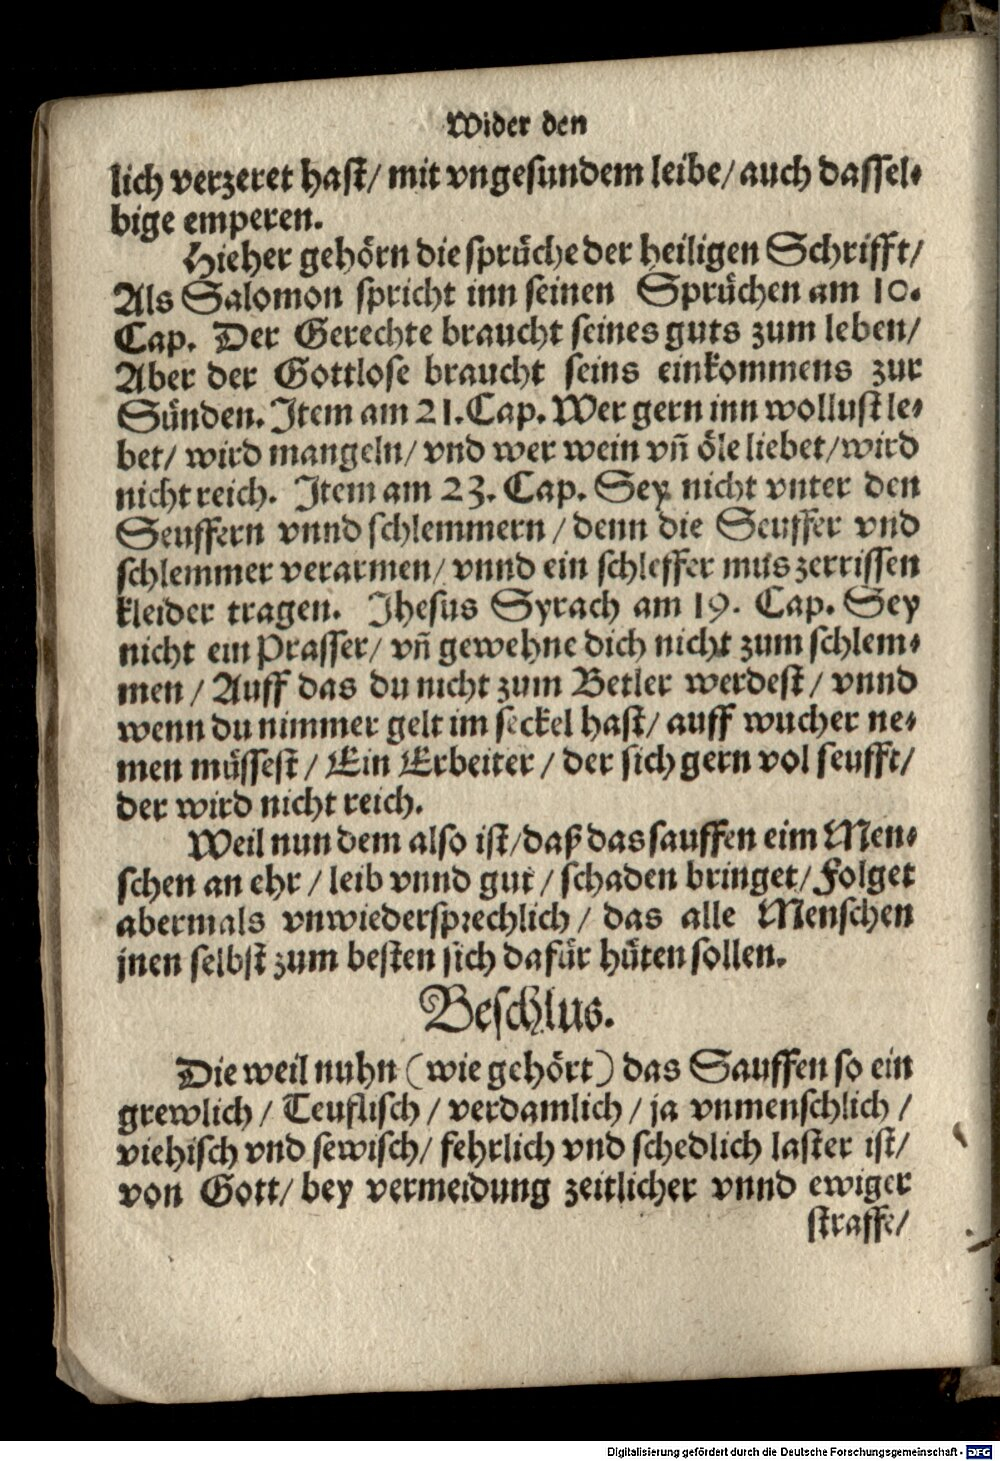 Wider den
lich verzeret hast/ mit vngesundem leibe/ auch dassel⸗
bige emperen.
Hieher gehörn die sprüche der heiligen Schrifft/
Als Salomon spricht inn seinen Sprüchen am 10.
Cap. Der Gerechte braucht seines guts zum leben/
Aber der Gottlose braucht seins einkommens zur
Sünden. Item am 21. Cap. Wer gern inn wollust le⸗
bet/ wird mangeln/ vnd wer wein vñ öle liebet/ wird
nicht reich. Item am 23. Cap. Sey nicht vnter den
Seuffern vnnd schlemmern / denn die Seuffer vnd
schlemmer verarmen/ vnnd ein schleffer mus zerrissen
kleider tragen. Jhesus Syrach am 19. Cap. Sey
nicht ein Prasser/ vñ gewehne dich nicht zum schlem⸗
men / Auff das du nicht zum Betler werdest/ vnnd
wenn du nimmer gelt im seckel hast/ auff wucher ne⸗
men müssest / Ein Erbeiter / der sich gern vol seufft/
der wird nicht reich.
Weil nun dem also ist/ daß das sauffen eim Men⸗
schen an ehr / leib vnnd gut / schaden bringet/ Folget
abermals vnwiedersprechlich / das alle Menschen
jnen selbst zum besten sich dafür hüten sollen.
Beschlus.
Die weil nuhn (wie gehört) das Sauffen so ein
grewlich / Teuflisch / verdamlich / ja vnmenschlich /
viehisch vnd sewisch/ fehrlich vnd schedlich laster ist/
von Gott/ bey vermeidung zeitlicher vnnd ewiger
straffe/
Digitalisierung gefördert durch die Deutsche Forschungsgemeinschaft - DFG